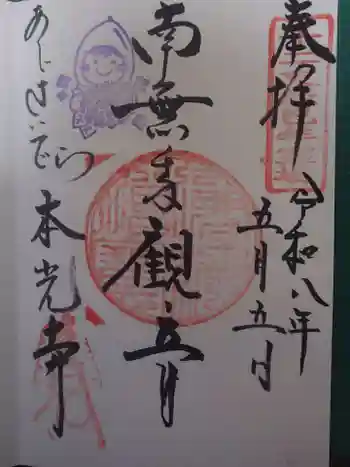 奉拝
令和八年
五月五日
南無麦観、五月
あじさいでら
本光寺